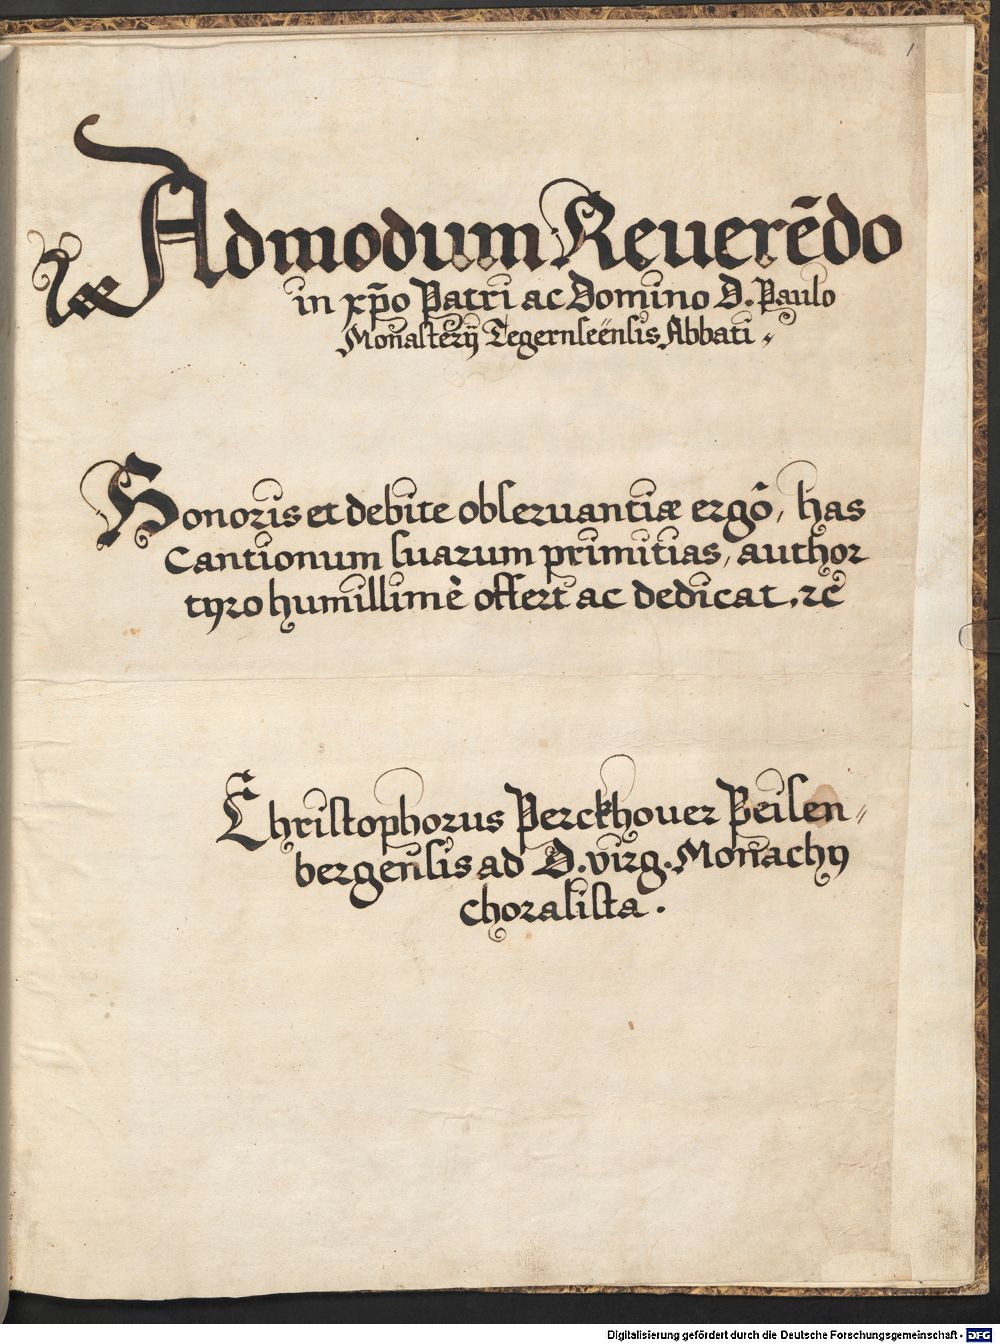 1
Admodum Reuerēdo
in xp̄o Patri ac Domino D. Paulo
Monasterÿ Tegernseënsis Abbati
Honoris et debite obseruantiæ ergô, has
Cantionum suarum primitias, author
tyro humillimè offert ac dedicat, ꝛc̄
Christophorus Perckhouer Peisen⸗
bergensis ad D. virg. Monachÿ
choralista.
Digitalisierung gefördert durch die Deutsche Forschungsgemeinschaft - DFG